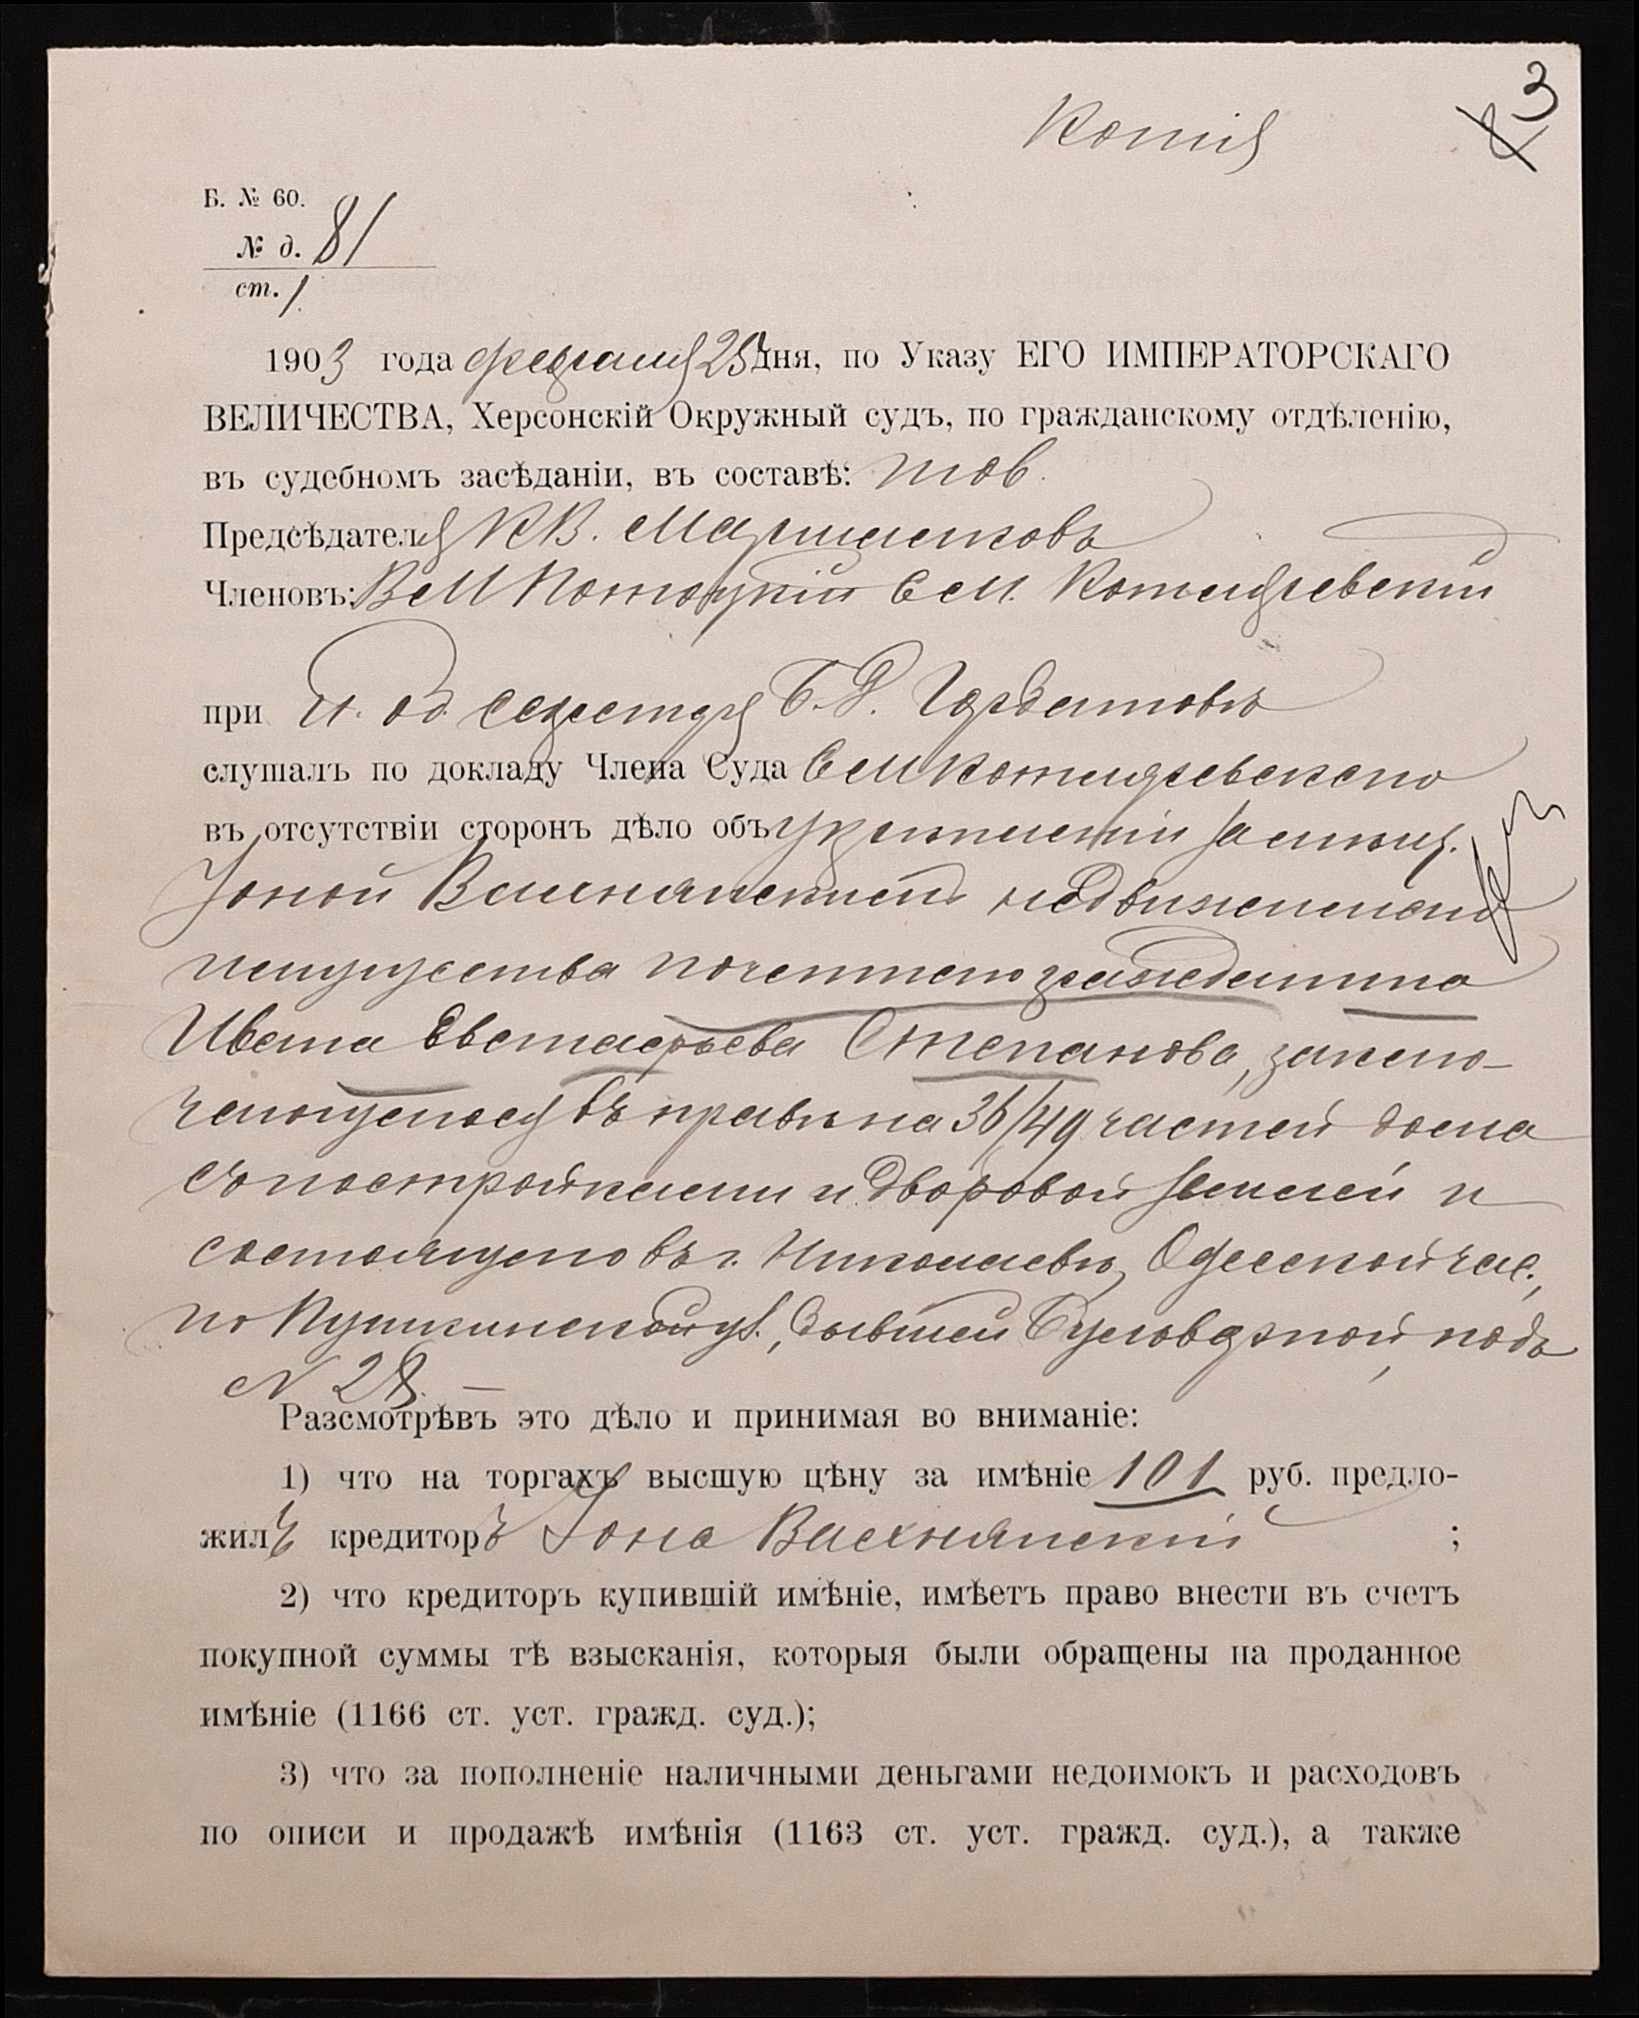 Копія
3
Б. № 60.
№ д. 81
ст. 1.
1903 года февраля 25 дня, по Указу ЕГО ИМПЕРАТОРСКАГО
ВЕЛИЧЕСТВА, Херсонскій Окружный судъ, по гражданскому отдѣленію,
въ судебномъ засѣданіи, въ составѣ: тов.
Предсѣдателя К В.
Членовъ: В М Потоцкій С М. Котляревскій
при И. об. секретаря Б. Д.
слушалъ по докладу Члена Суда С М Котляревскаго
въ отсутствіи сторонъ дѣло объ укрѣпленіи за
Іоной Вахнянскимъ недвижимаго
имущества почетнаго гражданина
Ивана Евстафьева Степанова, заклю-
чающагося въ правѣ на 36/49 частей дома
съ постройками и дворовой землей и
состоящаго въ г. Николаевѣ, Одесской час.,
по Пушкинской ул., бывшей Бульварной, подъ
№ 28. —
Разсмотрѣвъ это дѣло и принимая во вниманіе:
1) что на торгахъ высшую цѣну за имѣніе 101 руб. предло-
жилъ кредиторъ Іона Вахнянскій ;
2) что кредиторъ купившій имѣніе, имѣетъ право внести въ счетъ
покупной суммы тѣ взысканія, которыя были обращены на проданное
имѣніе (1166 ст. уст. гражд. суд.);
3) что за пополненіе наличными деньгами недоимокъ и расходовъ
по описи и продажѣ имѣнія (1163 ст. уст. гражд. суд.), а также